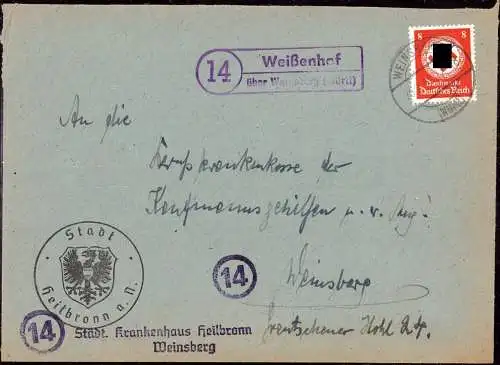 14
Weißenhof
über Weinsberg (Württ)
8 8
Dienstmarke
Deutsches Reich
WEINS
An die
Berufskrankenkasse der
Kaufmannsgehilfen u. w. Ang.
Weinsberg
Hohl 24.
Stadt
Heilbronn a. N.
14
14
Städt. Krankenhaus Heilbronn
Weinsberg